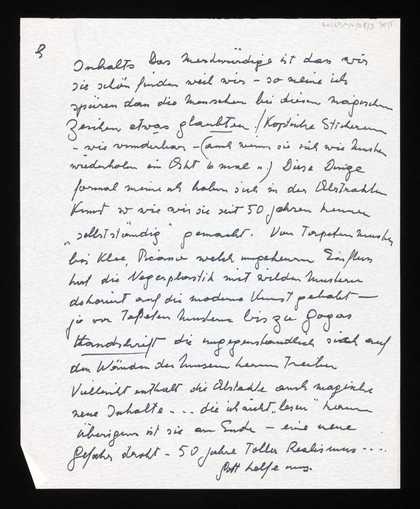 5
Inhalts Das Merkwürdige ist das wir
sie schön finden weil wir – so meine ich
spüren dan die Menschen bei diesen magischen
Zeichen etwas glaubten / Koptische Stickereien
– wie wunderbar – (auch wenn sie sich wie Muster
wiederholen ein Ost 6 mal ..) Diese Dinge
formal meine ich haben sich in der Abstrakten
Kunst so wie wir sie seit 50 Jahren kennen
„selbstständig" gemacht. Von Tapetenmuster
bis Klee Picasso welch ungeheuren Einfluss
hat die Negerplastik mit wilden Mustern
dekoriert auf die moderne Kunst gehabt –
ja von Tapeten Mustern bis zu Gogas
Handschrift die ungegenständlich sich auf
den Wänden der Museen herum Treiben
Vielleicht enthält die Abstrakte auch magische
neue Inhalte ... die ich nicht „lesen" kann
übrigens ist sie am Ende – eine neue
Gefahr droht – 50 Jahre Toller Realismus ...
Gott helfe uns.